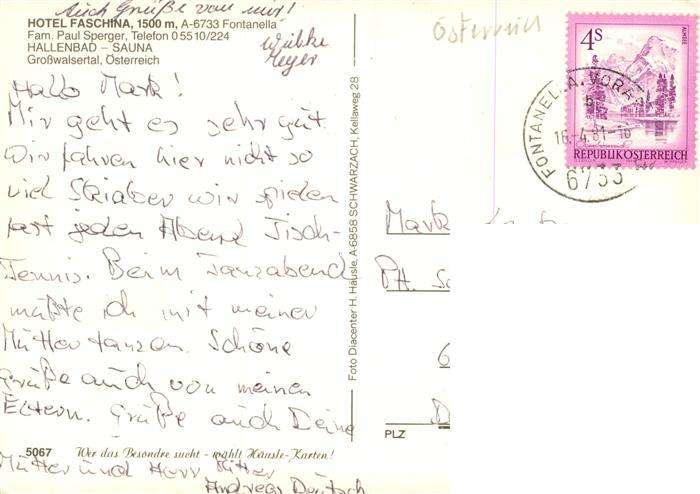 Auch Grüße von mir!
Wiebke
Meyer
HOTEL FASCHINA, 1500 m, A-6733 Fontanella
Fam. Paul Sperger, Telefon 0 55 10/224
HALLENBAD – SAUNA
Großwalsertal, Österreich
Hallo Mark!
Mir geht es sehr gut.
Wir fahren hier nicht so
viel Ski aber wir spielen
fast jeden Abend Tisch-
Tennis. Beim Tanzabend
mußte ich mit meiner
Mutter tanzen. Schöne
Grüße auch von meinen
Eltern. Grüße auch Deine
Mutter und Herr Ritter
Andreas Deutsch
5067 Wer das Besondre sucht - wählt Häusle-Karten!
Foto Diacenter H. Häusle, A-6858 SCHWARZACH, Kellaweg 28
Österreich
4S
ALMSEE
REPUBLIK ÖSTERREICH
FONTANELLA, VORA
16.-4.81-18
6733
Mark
Pt. Sc
6
D
PLZ